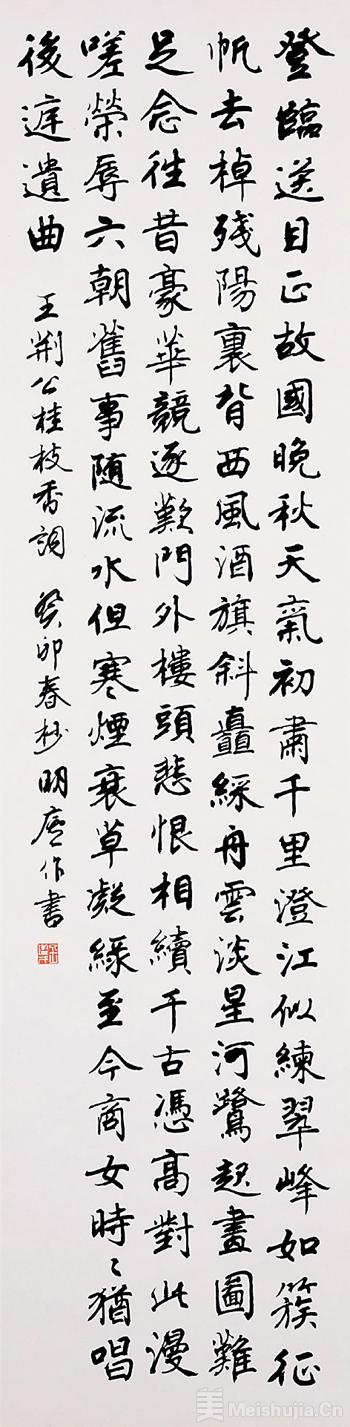 登臨送目正故國晚秋天氣初肅千里澄江似練翠峰如簇征
帆去棹殘陽裏背西風酒旗斜矗綵舟雲淡星河鷺起畫圖難
足念往昔豪華競逐歎門外樓頭悲恨相續千古憑高對此漫
嗟榮辱六朝舊事随流水但寒煙衰草凝綠至今商女時〻猶唱
後庭遺曲 王荆公桂枝香詞 癸卯春杪明廬作書
美 Meishujia.Cn